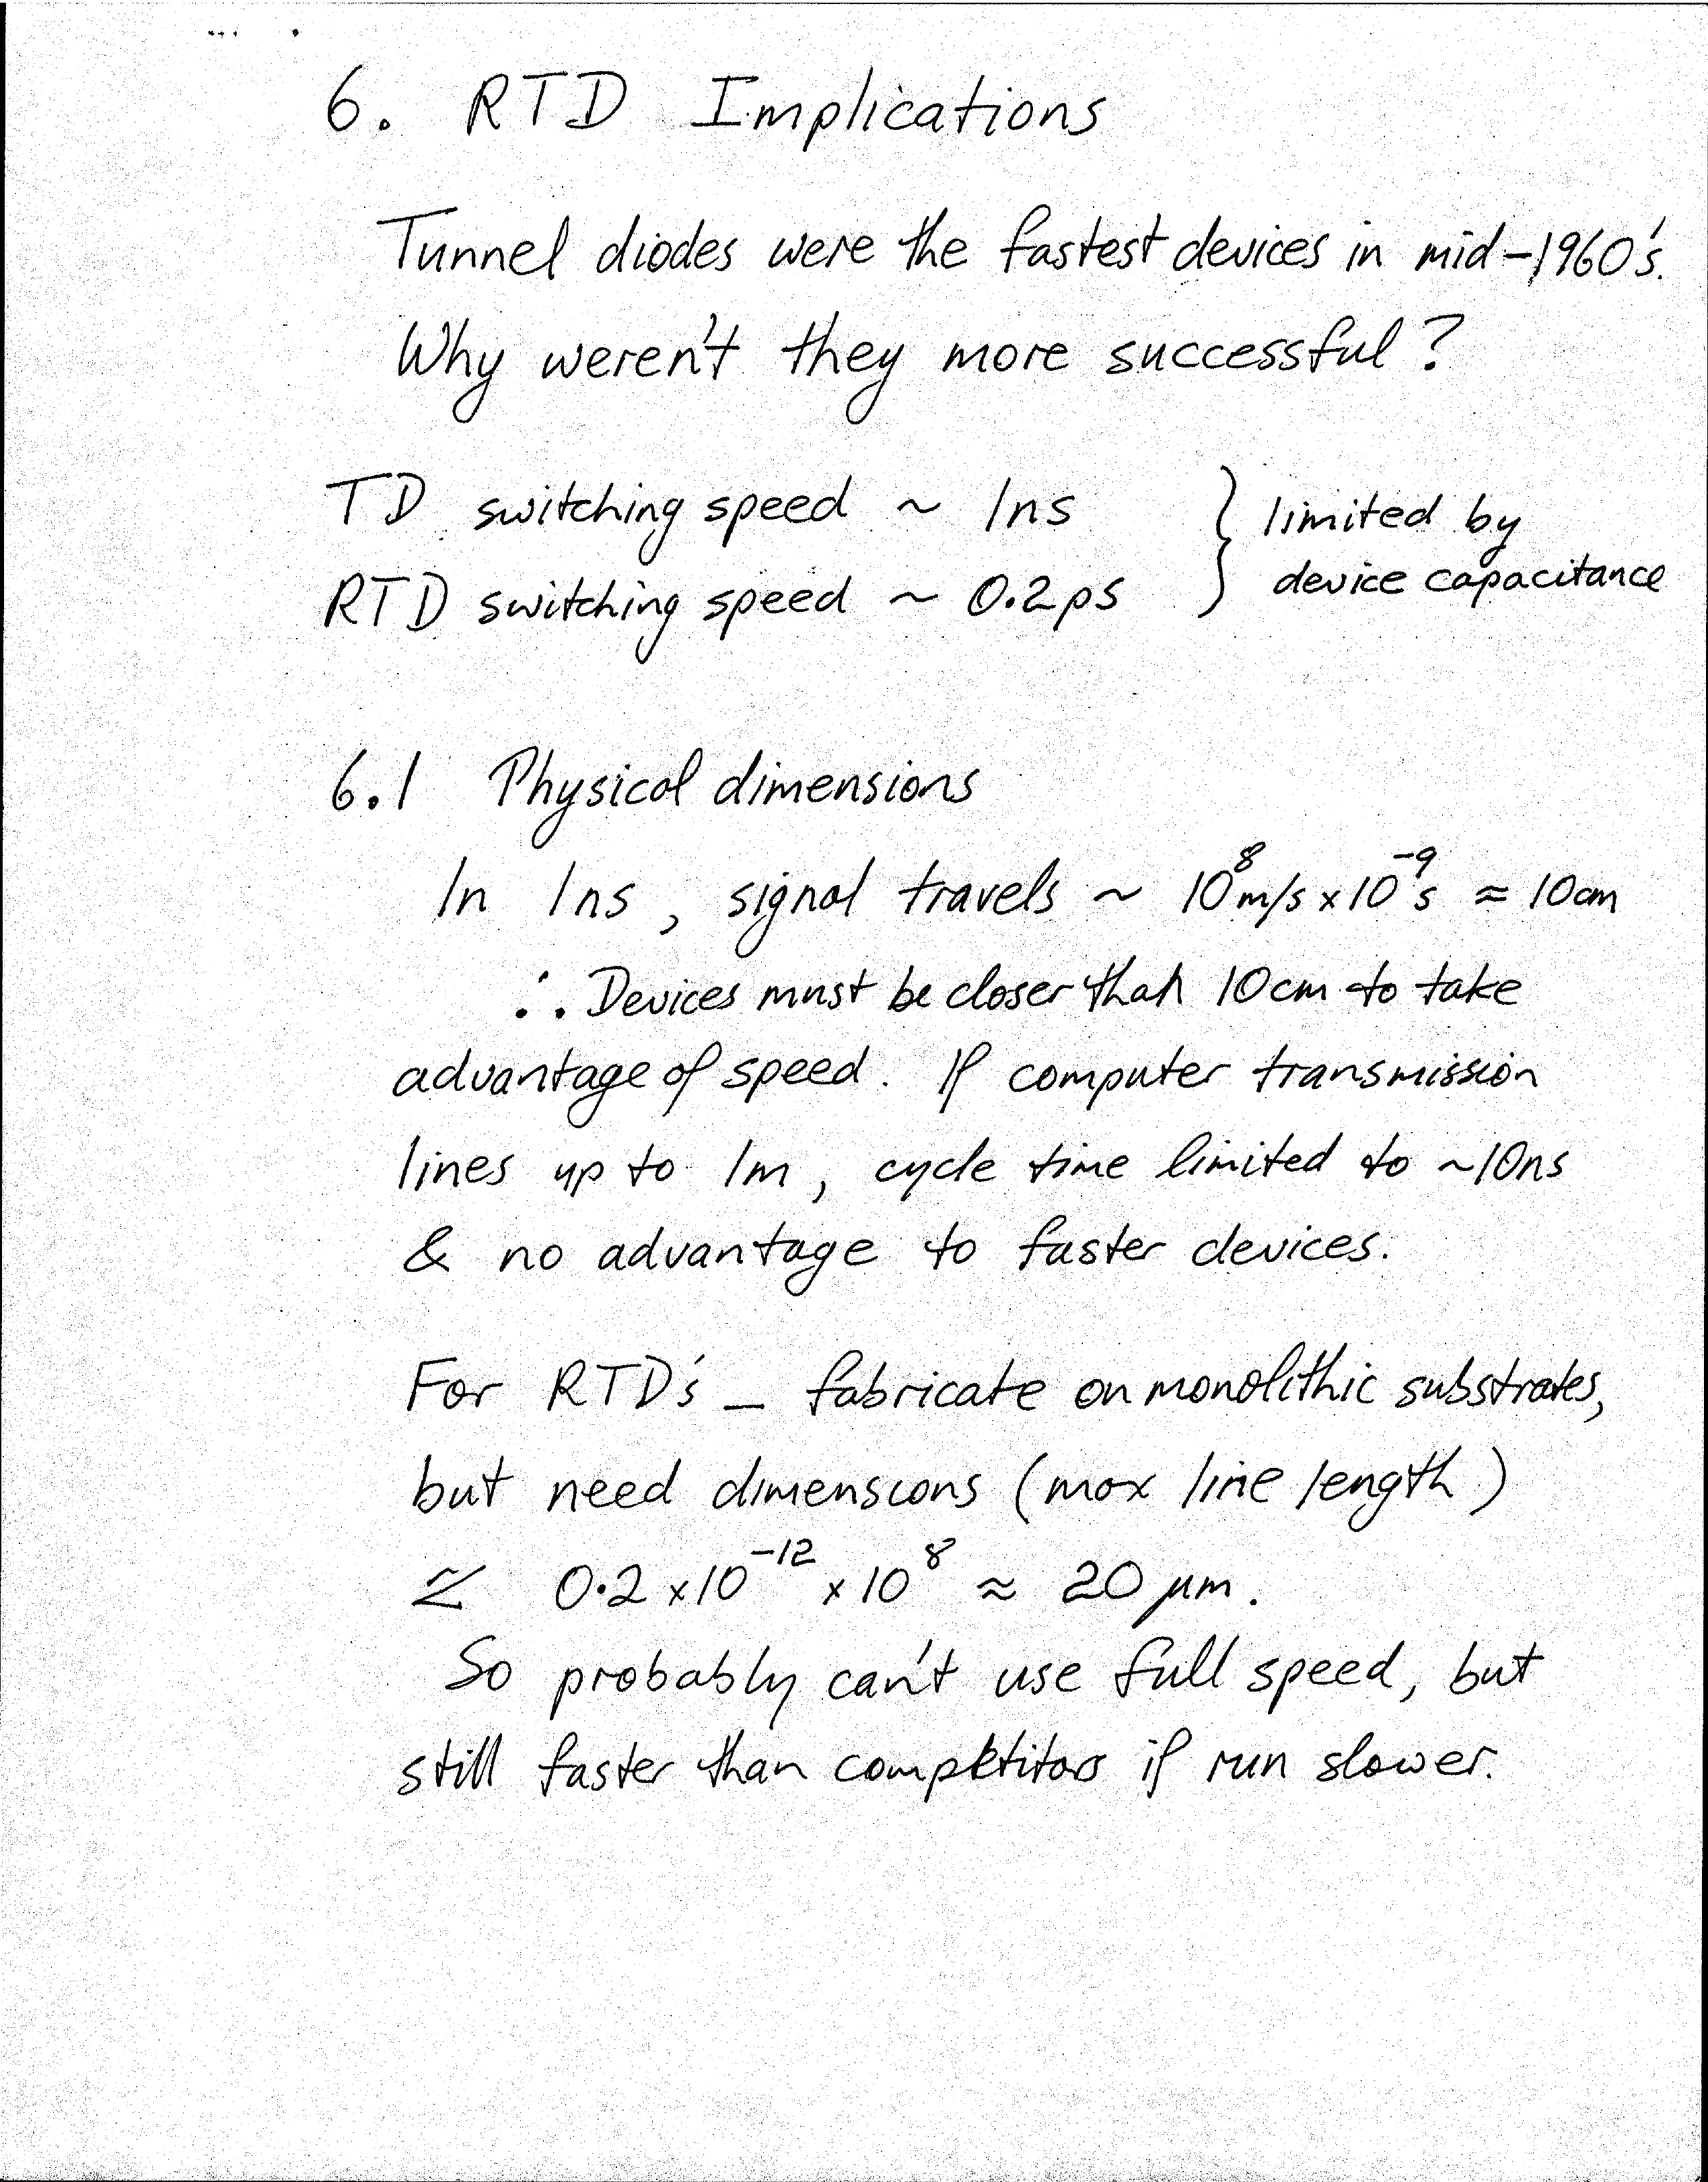 6. RTD Implications
Tunnel diodes were the fastest devices in mid-1960's.
Why weren't they more successful?
TD switching speed ~ 1ns } limited by
RTD switching speed ~ 0.2ps } device capacitance
6.1 Physical dimensions
In 1ns, signal travels ~ 10⁸m/s × 10⁻⁹s ≈ 10cm
∴ Devices must be closer than 10cm to take
advantage of speed. If computer transmission
lines up to 1m, cycle time limited to ~10ns
& no advantage to faster devices.
For RTD's – fabricate on monolithic substrates,
but need dimensions (max line length)
≲ 0.2 × 10⁻¹² × 10⁸ ≈ 20 μm.
So probably can't use full speed, but
still faster than competitors if run slower.